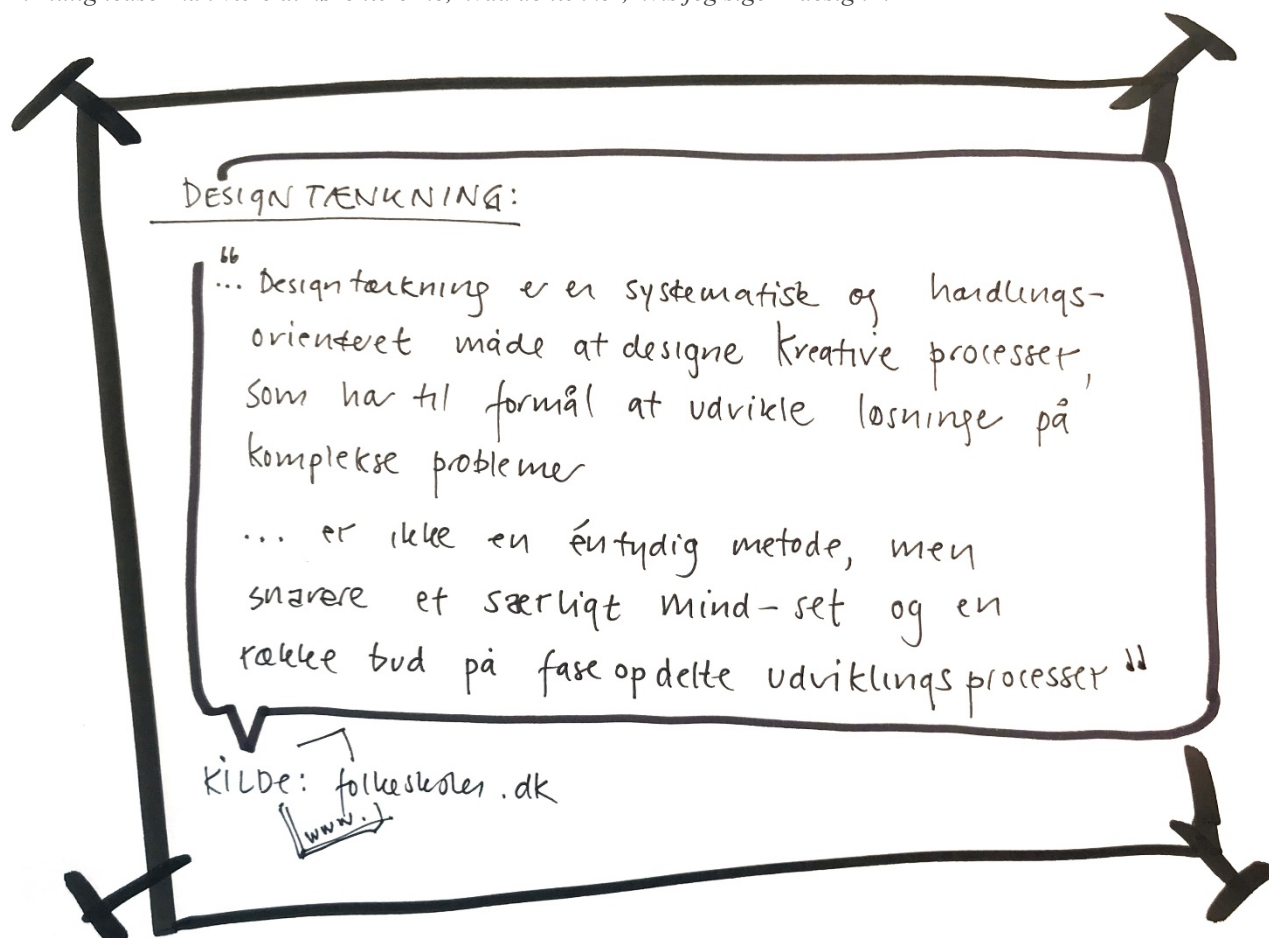 DESIGN TÆNKNING:
"
... Designtænkning er en systematisk og handlings-
orienteret måde at designe kreative processer,
som har til formål at udvikle løsninger på
komplekse problemer
... er ikke en éntydig metode, men
snarere et særligt mind-set og en
række bud på fase opdelte udviklings processer"
KILDE: folkeskolen.dk
www.